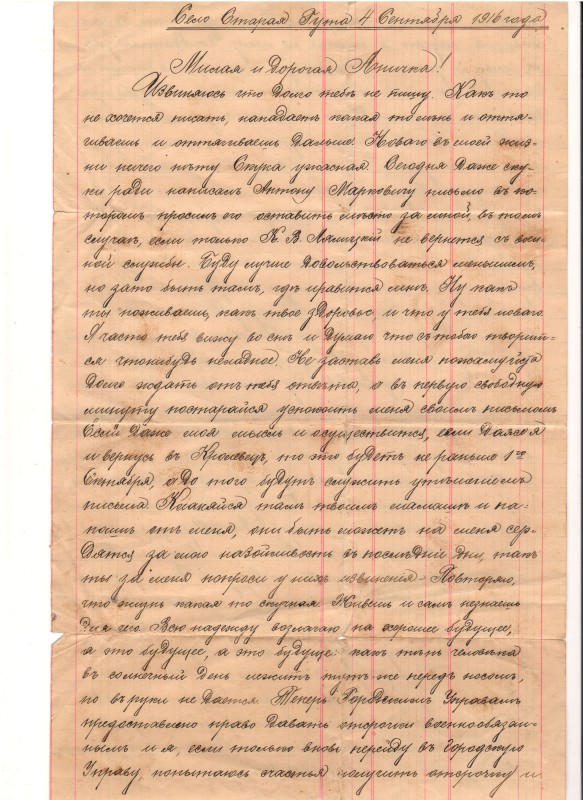 Село Старая Гута 4 Сентября 1916 года
Милая и Дорогая Аничка!
Извиняюсь что долго тебѣ не пишу. Какъ то
не хочется писать, нападаетъ какая то лѣнь и оття-
гиваешь и оттягиваешь дальше. Новаго въ моей жиз-
ни ничего нѣту Скука ужасная. Сегодня даже ску-
ки ради написалъ Антону Марковичу письмо въ ко-
торомъ просилъ его оставить мѣсто за мной, въ томъ
случаѣ, если только К. В. Лялицкій не вернется съ воен-
ной службы. Буду лучше довольствоваться меньшимъ,
но зато быть тамъ, гдѣ нравится мнѣ. Ну какъ
ты поживаешь, какъ твое здоровье и что у тебя новаго
Я часто тебя вижу во снѣ и думаю что съ тобою творит-
ся чтонибудь неладное. Не заставь меня пожалуйста
долго ждать отъ тебя отвѣта, а въ первую свободную
минуту постарайся успокоить меня своимъ письмомъ
Если даже моя мысль и осуществится, если даже я
и вернусь въ Кролевец, то это будетъ не раньше 1го
Октября а до того будутъ служить утѣшеніемъ
письма. Кланяйся тамъ твоимъ мамашѣ и па-
пашѣ отъ меня, они быть можетъ на меня сер-
дятся за мою назойливость въ послѣдніе дни, такъ
ты за меня попроси у нихъ извиненія. Повторяю,
что жизнь какая то скучная. Живешь и самъ незнаешь
для чего. Всю надежду возлагаю на хорошее будущее,
а это будущее, а это будущее какъ тѣнь человѣка
въ солнечный день лежитъ тутъ же передъ носомъ,
но въ руки не дается. Теперь Городскимъ Управамъ
предоставлено право давать отсрочки военнообязан-
нымъ и я, если только вновь перейду въ Городскую
Управу, попытаюсь счастья получить отсрочку и